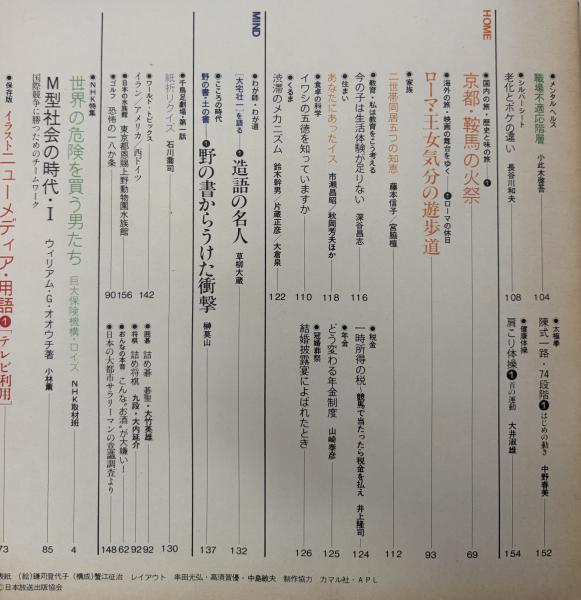 ●メンタルヘルス
職場不適応階層 小此木啓吾 104
●シルバーシート
老化とボケの違い 長谷川和夫 108
●太極拳
陳式一路・74段階❶はじめの動き 中野春美 152
●健康体操
肩こり体操❶首の運動 大井淑雄 154
HOME
●国内の旅・歴史と味の旅❶
京都・鞍馬の火祭 69
●海外の旅・映画の舞台をゆく❶ローマの休日
ローマ・王女気分の遊歩道 93
●家族
二世帯同居五つの知恵 藤本信子/宮脇檀 112
●教育・私は教育をこう考える
今の子は生活体験が足りない 深谷昌志 116
●住まい
あなたにあったイス 市瀬昌昭/秋岡芳夫ほか 118
●食卓の科学
イワシの五徳を知っていますか 110
●くるま
渋滞のメカニズム 鈴木幹男/片蔵正彦/大倉泉 122
●税金
一時所得の税―競馬で当たったら税金を払え 井上隆司 124
●年金
どう変わる年金制度 山崎泰彦 125
●冠婚葬祭
結婚披露宴によばれたとき 126
MIND
●わが師・わが道
「大宅壮一」を語る❶造語の名人 草柳大蔵 132
●こころの時代
野の書・土の書❶野の書からうけた衝撃 榊莫山 137
●千鳥足劇場・第一話
紙折りクイズ 石川喬司 130
●ワールド・トピックス
イラン/アメリカ/西ドイツ 142
●日本の水族館 東京都恩賜上野動物園水族館 156
●ゴルフ 恐怖の一八か条 90
●囲碁 詰め碁 碁聖・大竹英雄 92
●将棋 詰め将棋 九段・大内延介 92
●おんなの本音 こんな“お酒”が大嫌い！ 62
●日本の大都市サラリーマンの意識調査より 148
●NHK特集
世界の危険を買う男たち 巨大保険機構・ロイズ NHK取材班 4
M型社会の時代・I ウィリアム・G・オオウチ著 小林薫 85
国際競争に勝つためのチームワーク
●保存版 イラストニューメディア・用語❶「テレビ利用」 73
表紙 (絵)鎌苅登代子 (構成)蟹江征治 レイアウト 串田光弘・高須賀優・中島敏夫 制作協力 カマル社・APL
©日本放送出版協会